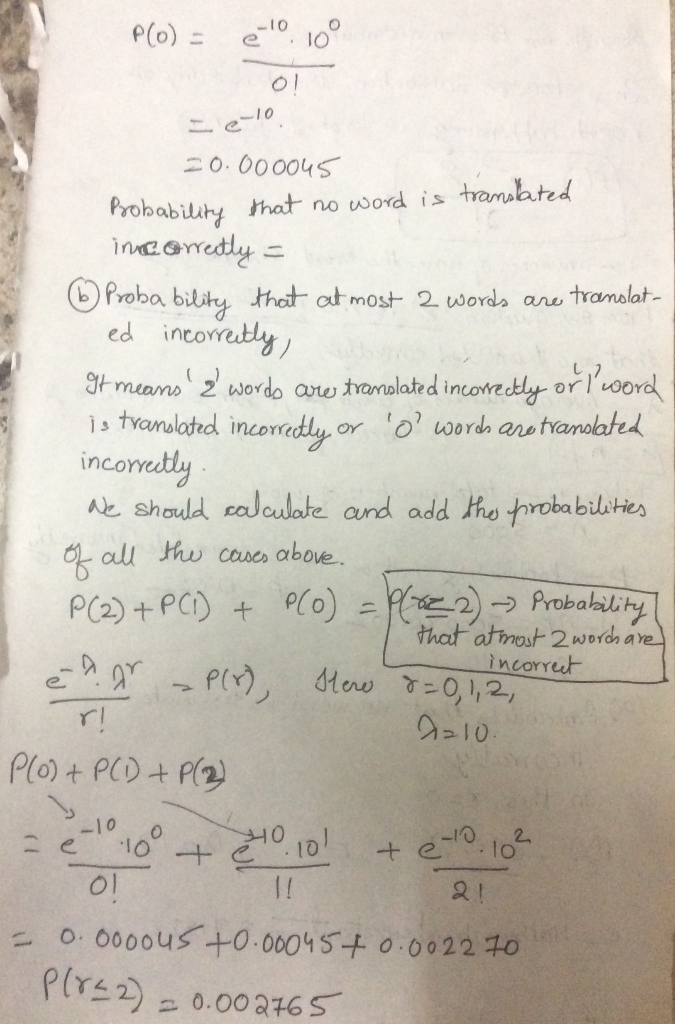 P(0) = e^-10 . 10^0
0!
= e^-10.
= 0.000045
Probability that no word is translated
incorrectly =
(b) Probability that at most 2 words are translat-
ed incorrectly,
It means '2' words are translated incorrectly or '1' word
is translated incorrectly or '0' words are translated
incorrectly.
We should calculate and add the probabilities
of all the cases above.
P(2) + P(1) + P(0) = P(r ≤ 2) → Probability
that atmost 2 words are
incorrect
e^-λ . λ^r = P(r), Here r = 0, 1, 2,
r!
λ = 10.
P(0) + P(1) + P(2)
= e^-10 . 10^0 + e^-10 . 10^1 + e^-10 . 10^2
0! 1! 2!
= 0.000045 + 0.00045 + 0.002270
P(r ≤ 2) = 0.002765